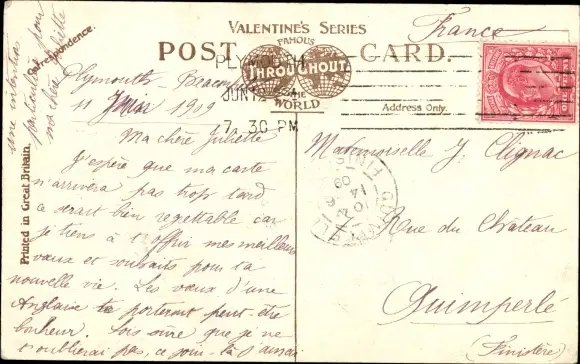 une intention
particulière pour
ma chère Juliette
VALENTINE'S SERIES
FAMOUS
THROUGHOUT
THE
WORLD
POST CARD.
Correspondence.
Address Only.
Printed in Great Britain.
France
PLYMOUTH
JUN 12
7. 30 PM
Plymouth - Beacon
11 1909
Ma chère Juliette
J'espère que ma carte
n'arrivera pas trop tard
ce serait bien regrettable car
je tiens à t'offrir mes meilleurs
vœux et souhaits pour ta
nouvelle vie. Les vœux d'une
Anglaise te porteront peut-être
bonheur. Sois sûre que je ne
t'oublierai pas, ce jour-là j'aurai
Mademoiselle J. Clignac
Rue du Château
Quimperlé
(Finistère)